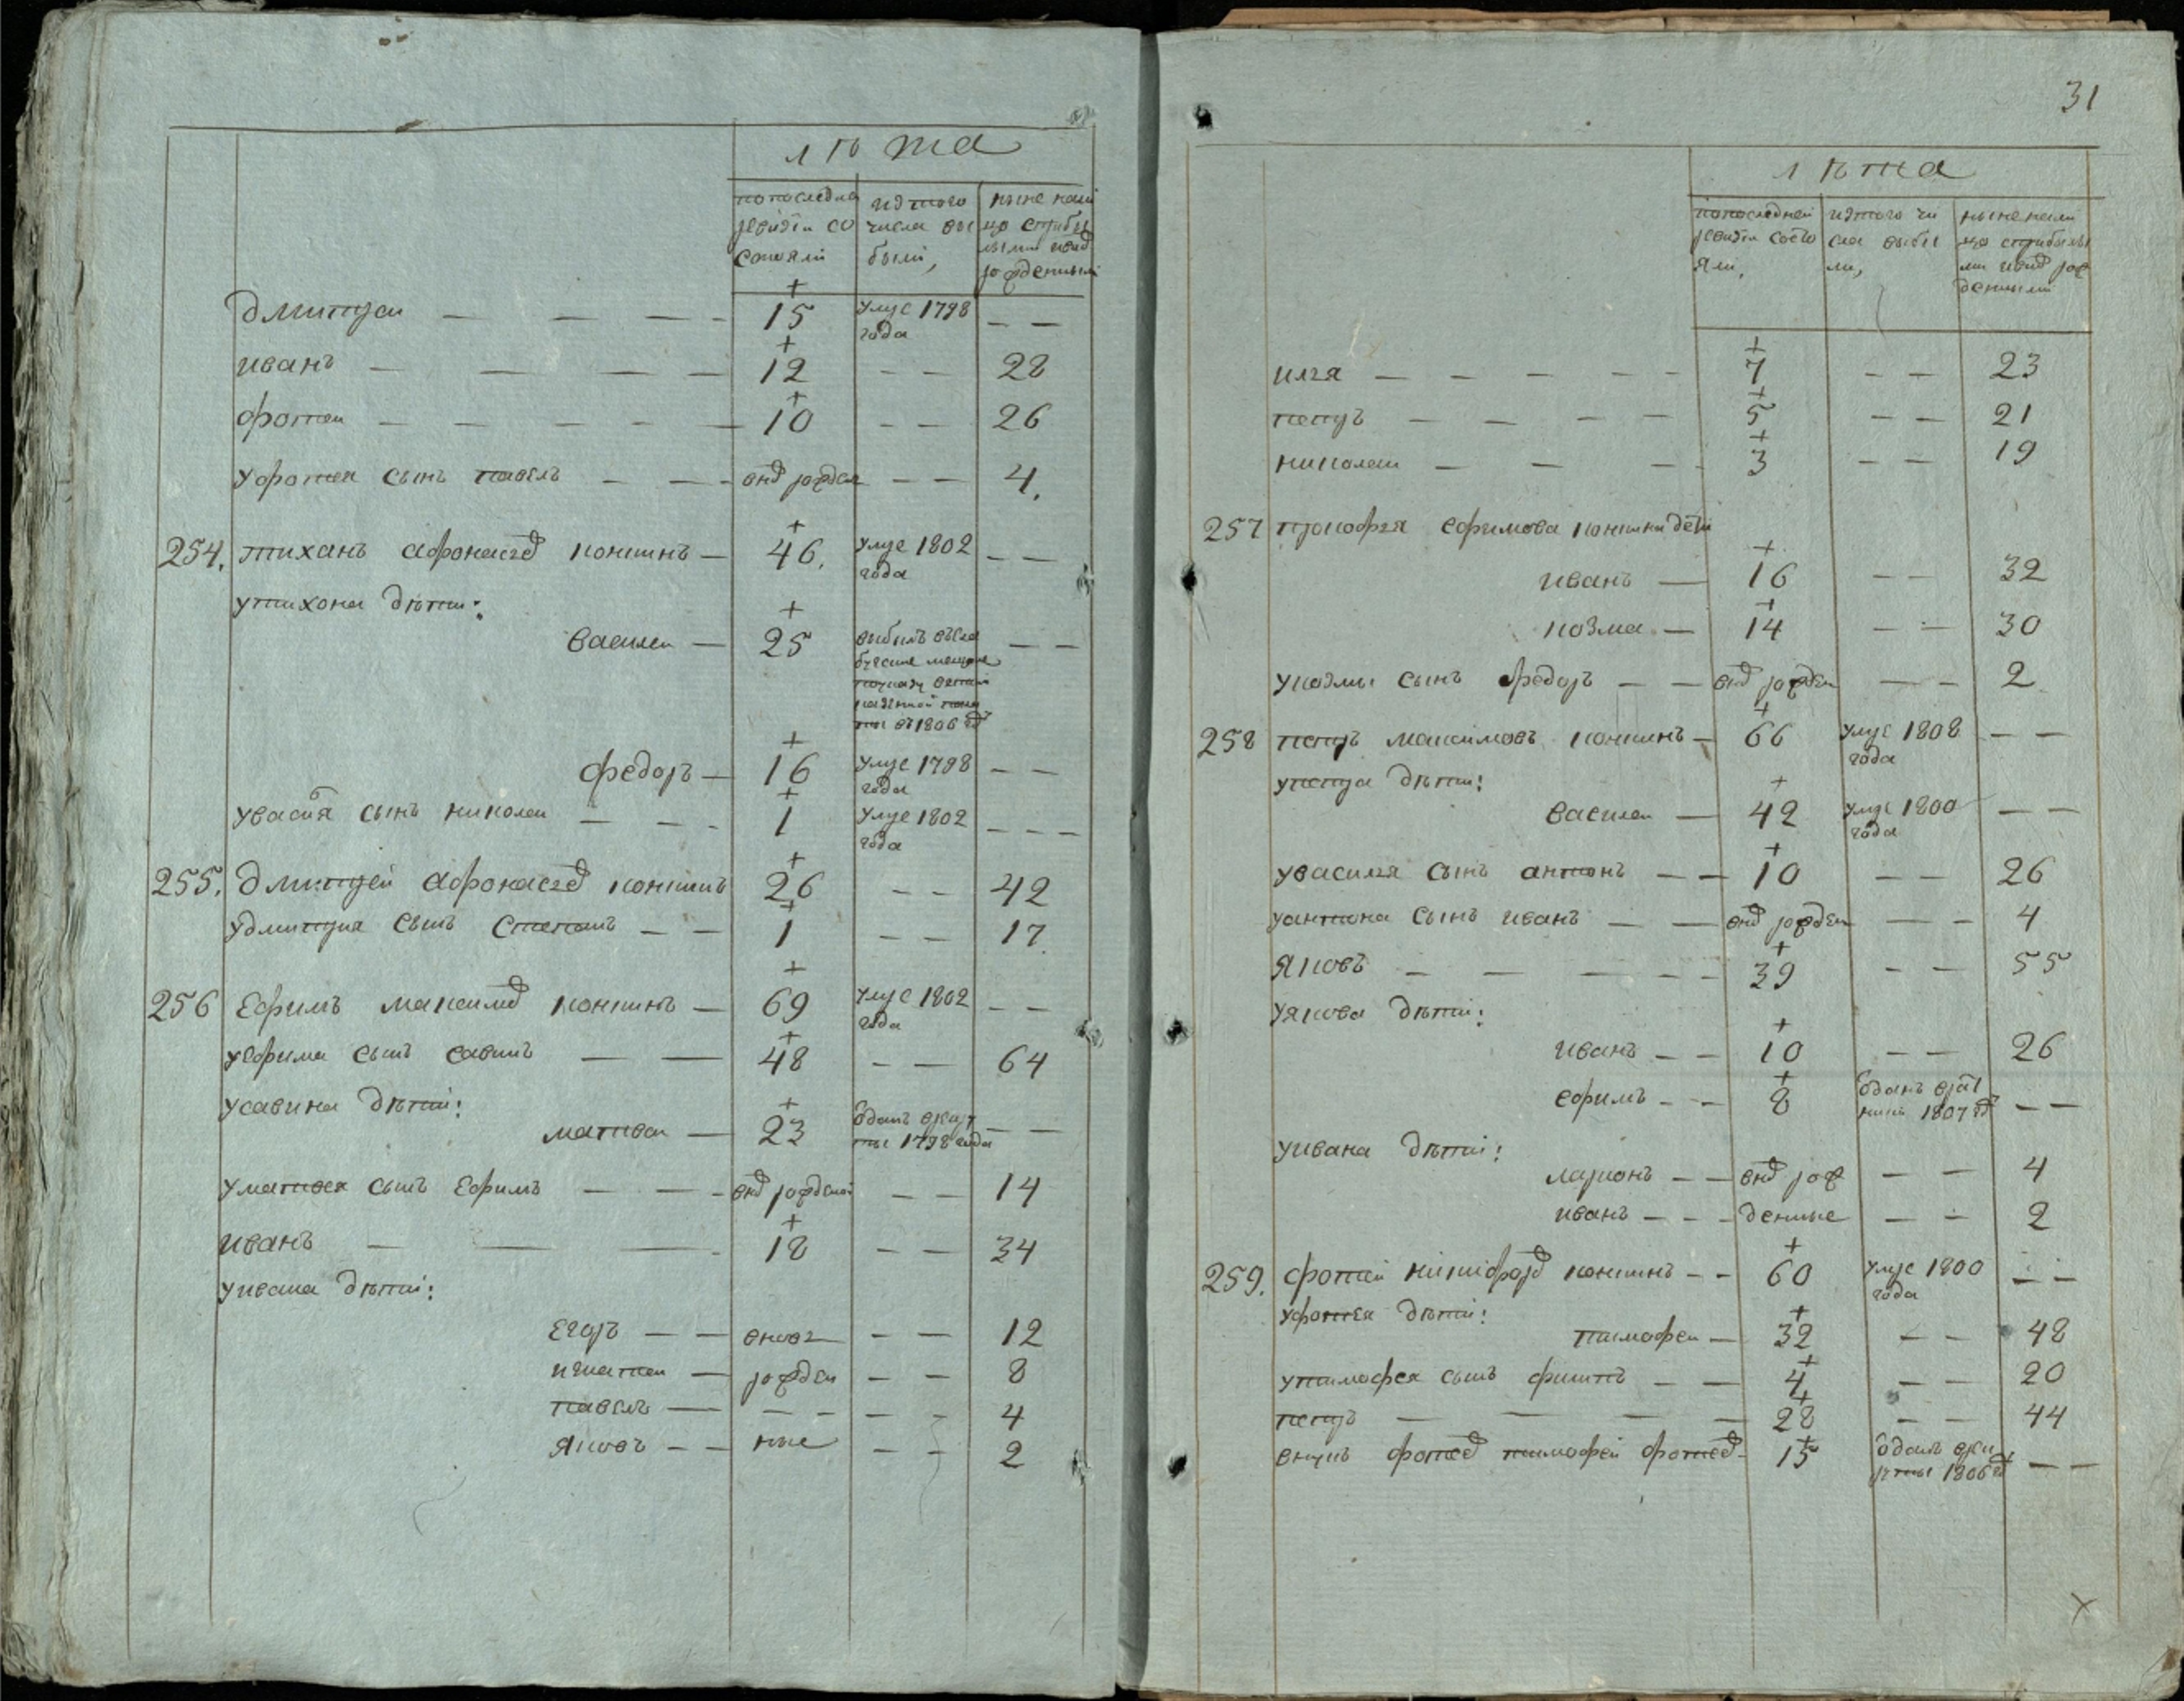 лѣта
по последнеи ревизiи состояли
изъ того числа выбыли,
ныне налицо с прибылыми и внов рожденными
Дмитреи — — — — + 15 умре 1798 года — —
иванъ — — — — + 12 — — 28
фотеи — — — — — + 10 — — 26
у фотея сынъ павелъ — — — внов рожден — — 4.
254. тиханъ афонасьев коншинъ — + 46. умре 1802 года — —
у тихона дѣти:
василеи — + 25 выбылъ въ мещане по указу казенной палаты въ 1806 год — —
федоръ — + 16 умре 1798 года — —
у василя сынъ николаи — — — + 1 умре 1802 года — — —
255. Дмитрей афонасьев коншинъ + 26 — — 42
у дмитрия сынъ степанъ — — + 1 — — 17
256 Ефимъ максимов коншинъ — + 69 умре 1802 года — —
у ефима сынъ савинъ — — + 48 — — 64
у савина дѣти:
матвеи — + 23 одан в рекруты 1798 года — —
у матвея сынъ Ефимъ — — — внов рожденой — — 14
иванъ — — — + 18 — — 34
у ивана дѣти:
Егоръ — — вновь — — 12
игнатеи — рожден — — 8
павелъ — — — — — 4
яковъ — — ные — — 2
31
лѣта
по последней ревизiи состояли,
изъ того числа выбыли,
ныне налицо с прибылыми и внов рожденными
илья — — — — — + 7 — — 23
петръ — — — — + 5 — — 21
николаи — — — + 3 — — 19
257 прокофья ефимова коншина дети
иванъ — + 16 — — 32
козма — + 14 — — 30
у козмы сынъ федоръ — — внов рожден — — 2
258 петръ максимовъ коншинъ — + 66 умре 1808 года — —
у петра дѣти:
василеи — + 42 умре 1800 года — —
у василья сынъ антонъ — — + 10 — — 26
у антона сынъ иванъ — — внов рожден — — 4
яковъ — — — — — + 39 — — 55
у якова дѣти:
иванъ — — + 10 — — 26
ефимъ — — + 8 одан в ратники 1807 год — —
у ивана дѣти:
ларионъ — — внов рож — — 4
иванъ — — — денные — — 2
259. фотей никифоров коншинъ — — + 60 умре 1800 года — —
у фотея дѣти:
тимофеи — + 32 — — 48
у тимофея сынъ филипъ — — + 4 — — 20
петръ — — — — + 28 — — 44
внукъ фотеев тимофей фотеев — + 15 одан в рекруты 1806 год — —
х